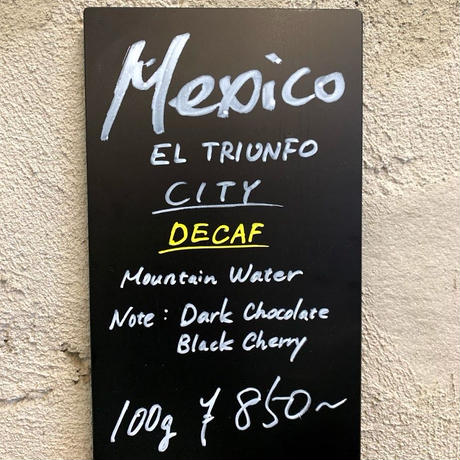 Mexico
EL TRIUNFO
CITY
DECAF
Mountain Water
Note : Dark Chocolate
Black Cherry
100g ¥ 850~